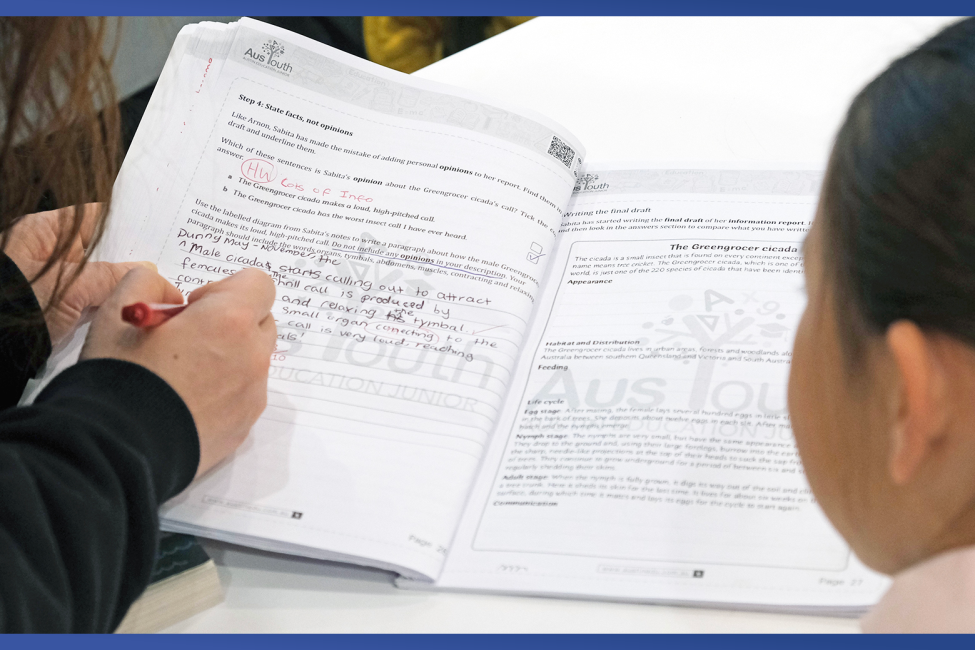 Aus Youth
Step 4: State facts, not opinions
Like Arnon, Sabita has made the mistake of adding personal opinions to her report. Find them
draft and underline them.
Which of these sentences is Sabita's opinion about the Greengrocer cicada's call? Tick the
answer.
HW Lots of Info
a The Greengrocer cicada makes a loud, high-pitched call.
b The Greengrocer cicada has the worst insect call I have ever heard.
Use the labelled diagram from Sabita's notes to write a paragraph about how the male Greengrocer
cicada makes its loud, high-pitched call. Do not include any opinions in your description. Your
paragraph should include the words organs, tymbals, abdomens, muscles, contracting and relaxing.
During May - November the
^ Male cicada starts calling out to attract
females. The shrill call is produced by
and relaxing the tymbal.
Small organ connecting to the
call is very loud, reaching
EDUCATION JUNIOR
Page: 26
Youth
Writing the final draft
Sabita has started writing the final draft of her information report.
and then look in the answers section to compare what you have
The Greengrocer cicada
The cicada is a small insect that is found on every continent except
name means tree cricket. The Greengrocer cicada, which is one of
world, is just one of the 220 species of cicada that have been
Appearance
Habitat and Distribution
The Greengrocer cicada lives in urban areas, forests and woodlands
Australia between southern Queensland and Victoria and South
Feeding
Aus Youth
EDUCATION JUNIOR
Life cycle
Egg stage: After mating, the female lays several hundred eggs in
Nymph stage: The nymphs are very small, but have the same appearance
They drop to the ground and, using their large forelegs, burrow into the
the sharp, needle-like projections at the top of their heads to suck the sap
of trees. They continue to grow underground for a period of between six and
regularly shedding their skins.
Adult stage: When the nymph is fully grown, it digs its way out of the soil and
a tree trunk. Here it sheds its skin for the last time. It lives for about six weeks
surface, during which time it mates and lays its eggs for the cycle to start again.
Communication
Page: 27